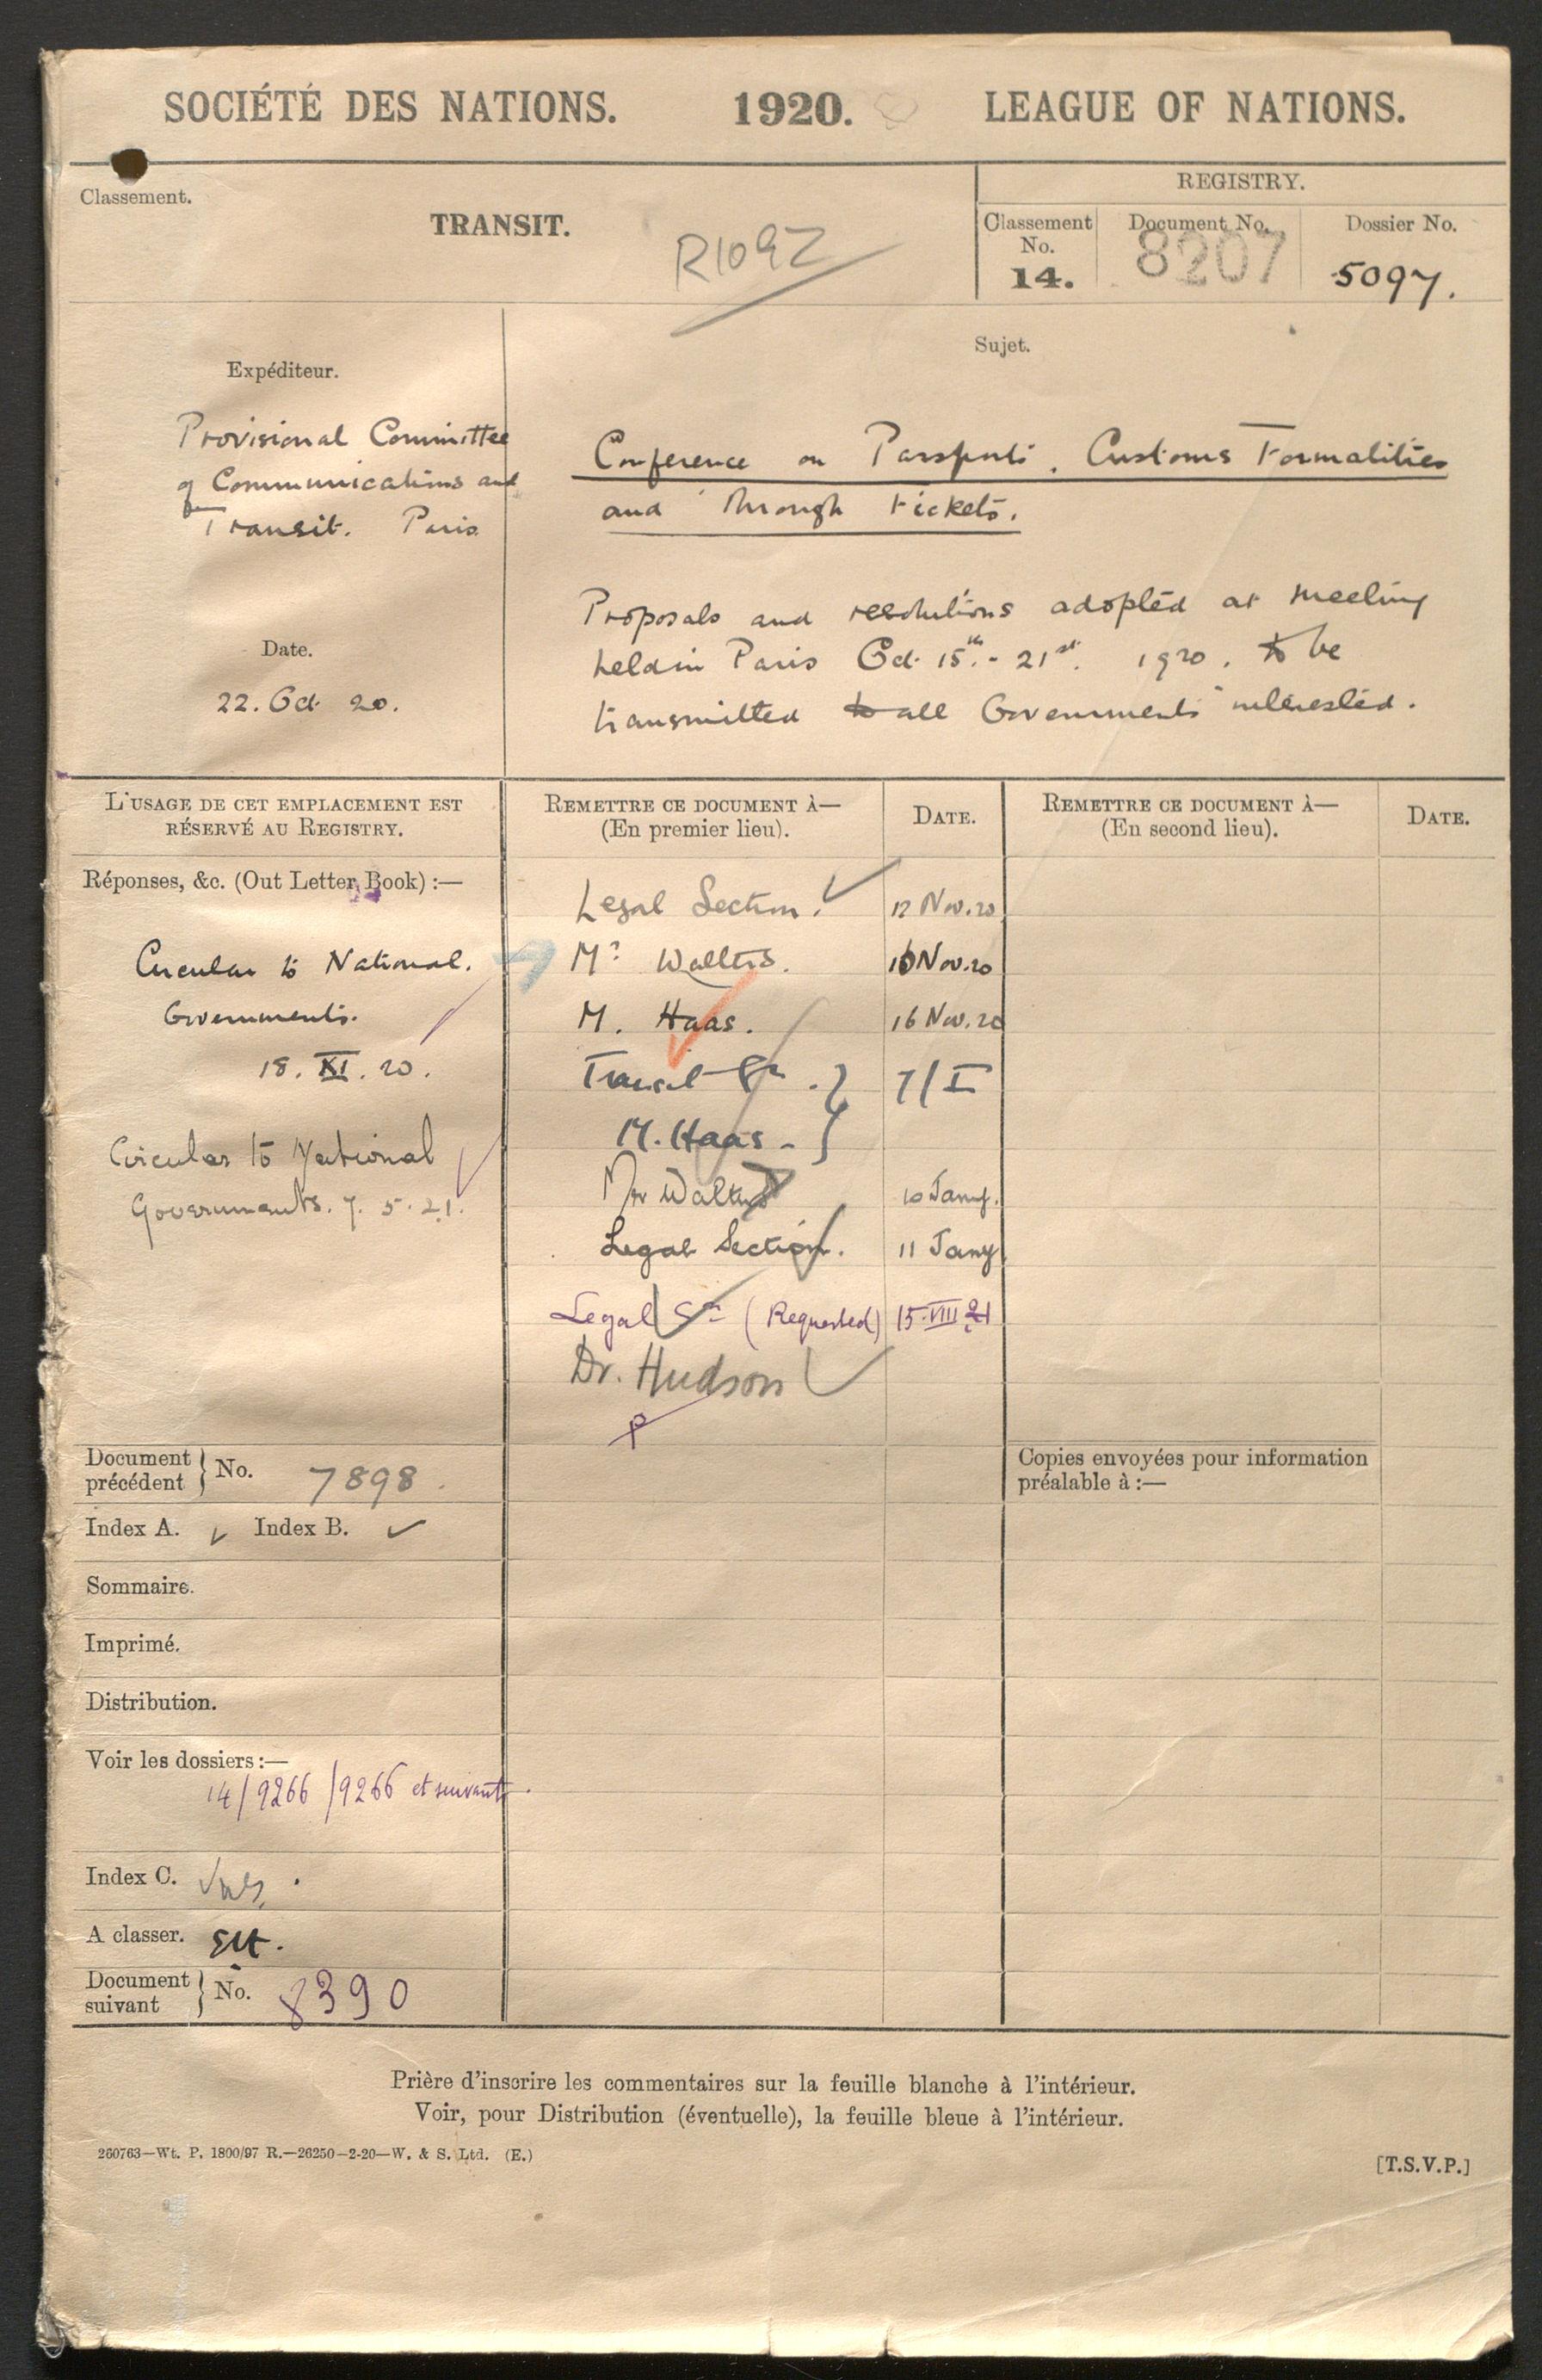 SOCIÉTÉ DES NATIONS. 1920. LEAGUE OF NATIONS.
Classement.
TRANSIT.
R1092
REGISTRY.
Classement No.
14.
Document No.
8207
Dossier No.
5097.
Expéditeur.
Provisional Committee
of Communications and
Transit. Paris
Date.
22. Oct 20.
Sujet.
Conference on Passports, Customs Formalities
and Through tickets.
Proposals and resolutions adopted at meeting
held in Paris Oct. 15th. - 21st. 1920. to be
transmitted to all Governments interested.
L'USAGE DE CET EMPLACEMENT EST
RÉSERVÉ AU REGISTRY.
Réponses, &c. (Out Letter Book) :—
Circular to National.
Governments.
18. XI. 20.
Circular to National
Governments. 7. 5. 21.
REMETTRE CE DOCUMENT À—
(En premier lieu).
DATE.
Legal Section. 12 Nov. 20
Mr Walters. 16 Nov. 20
M. Haas. 16 Nov. 20
Transit Sn. } 7/I
M. Haas - }
Mr Walters 10 Jany.
Legal Section. 11 Jany
Legal Sn (Requested) 15.VIII 21
Dr. Hudson
REMETTRE CE DOCUMENT À—
(En second lieu).
DATE.
Copies envoyées pour information
préalable à :—
Document
précédent } No. 7898.
Index A. Index B.
Sommaire.
Imprimé.
Distribution.
Voir les dossiers :—
14/9266/9266 et suivants.
Index C.
A classer.
Document
suivant } No. 8390
Prière d'inscrire les commentaires sur la feuille blanche à l'intérieur.
Voir, pour Distribution (éventuelle), la feuille bleue à l'intérieur.
260763—Wt. P. 1800/97 R.—26250—2-20—W. & S. Ltd. (E.)
[T.S.V.P.]